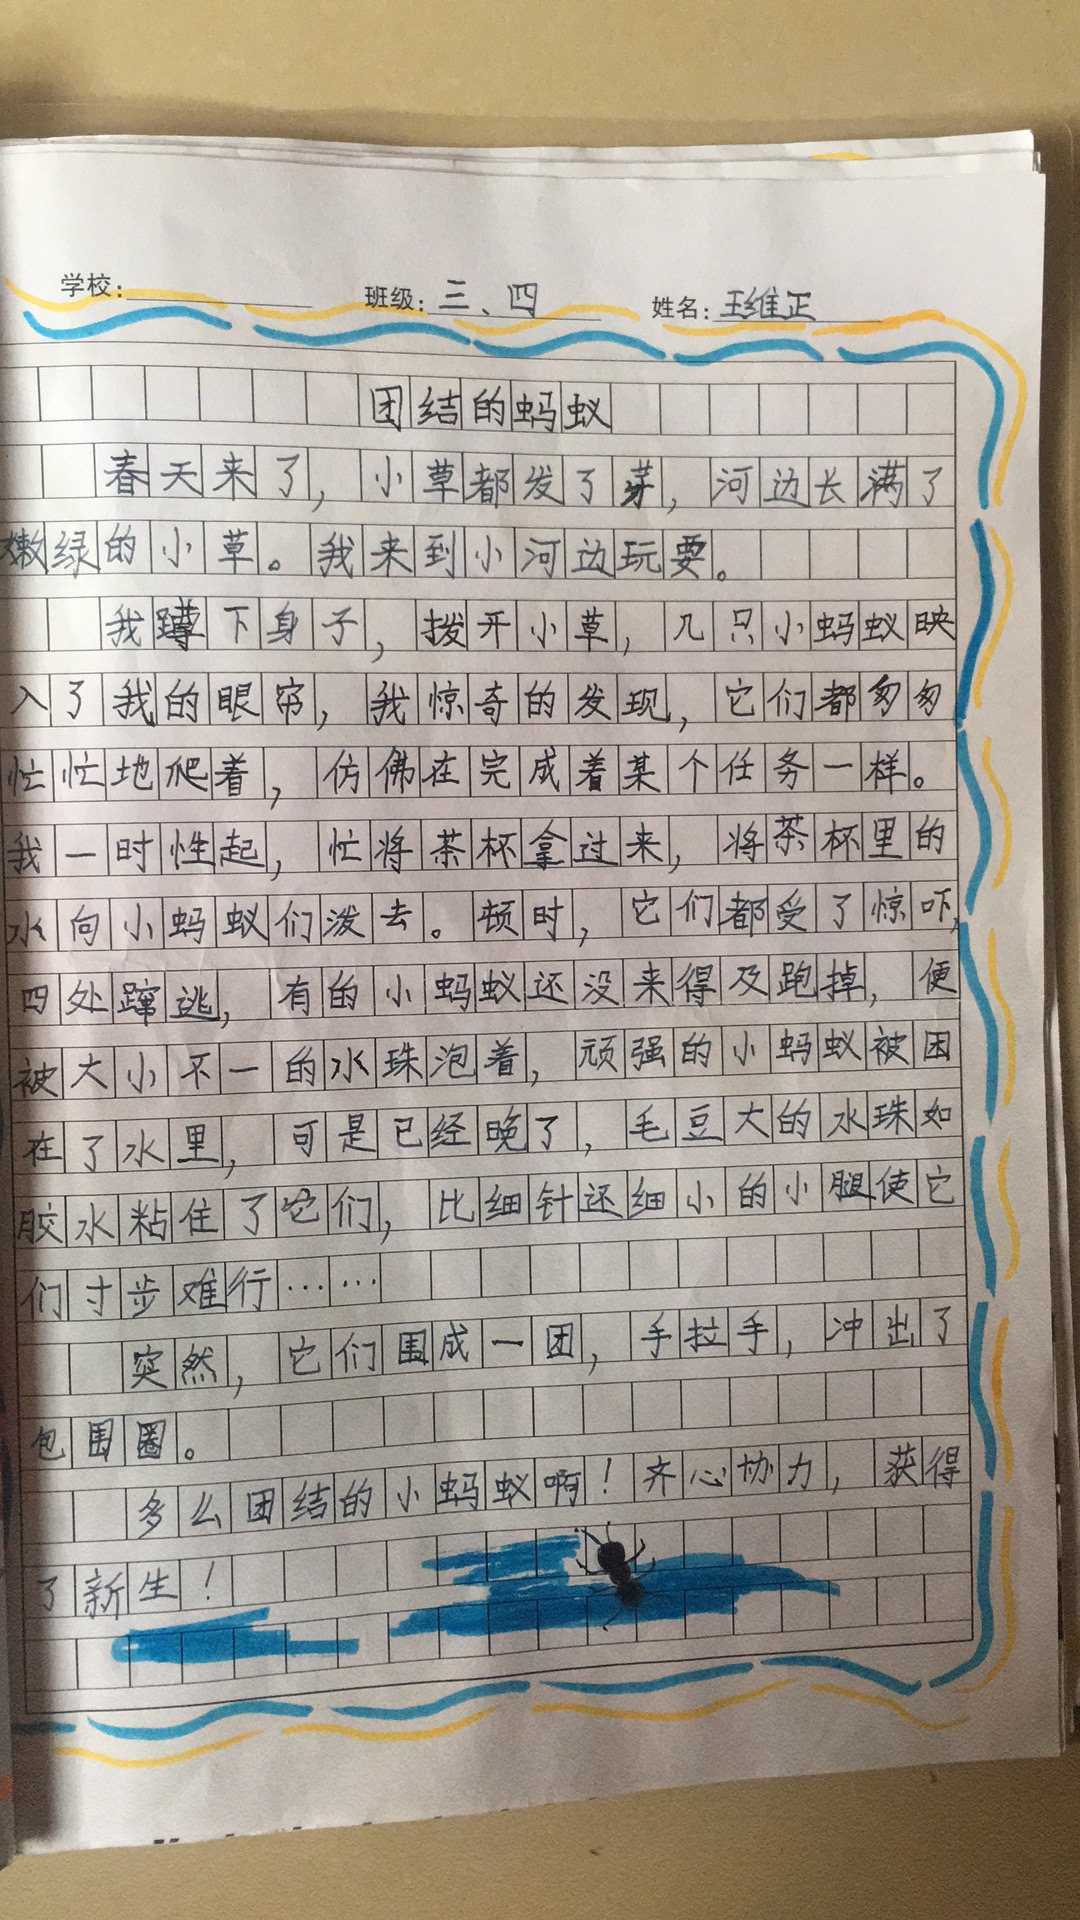 学校: 班级: 三、四 姓名: 王维正
团结的蚂蚁
春天来了，小草都发了芽，河边长满了
嫩绿的小草。我来到小河边玩耍。
我蹲下身子，拨开小草，几只小蚂蚁映
入了我的眼帘，我惊奇的发现，它们都匆匆
忙忙地爬着，仿佛在完成着某个任务一样。
我一时性起，忙将茶杯拿过来，将茶杯里的
水向小蚂蚁们泼去。顿时，它们都受了惊吓，
四处蹿逃，有的小蚂蚁还没来得及跑掉，便
被大小不一的水珠泡着，顽强的小蚂蚁被困
在了水里，可是已经晚了，毛豆大的水珠如
胶水粘住了它们，比细针还细小的小腿使它
们寸步难行……
突然，它们围成一团，手拉手，冲出了
包围圈。
多么团结的小蚂蚁啊！齐心协力，获得
了新生！